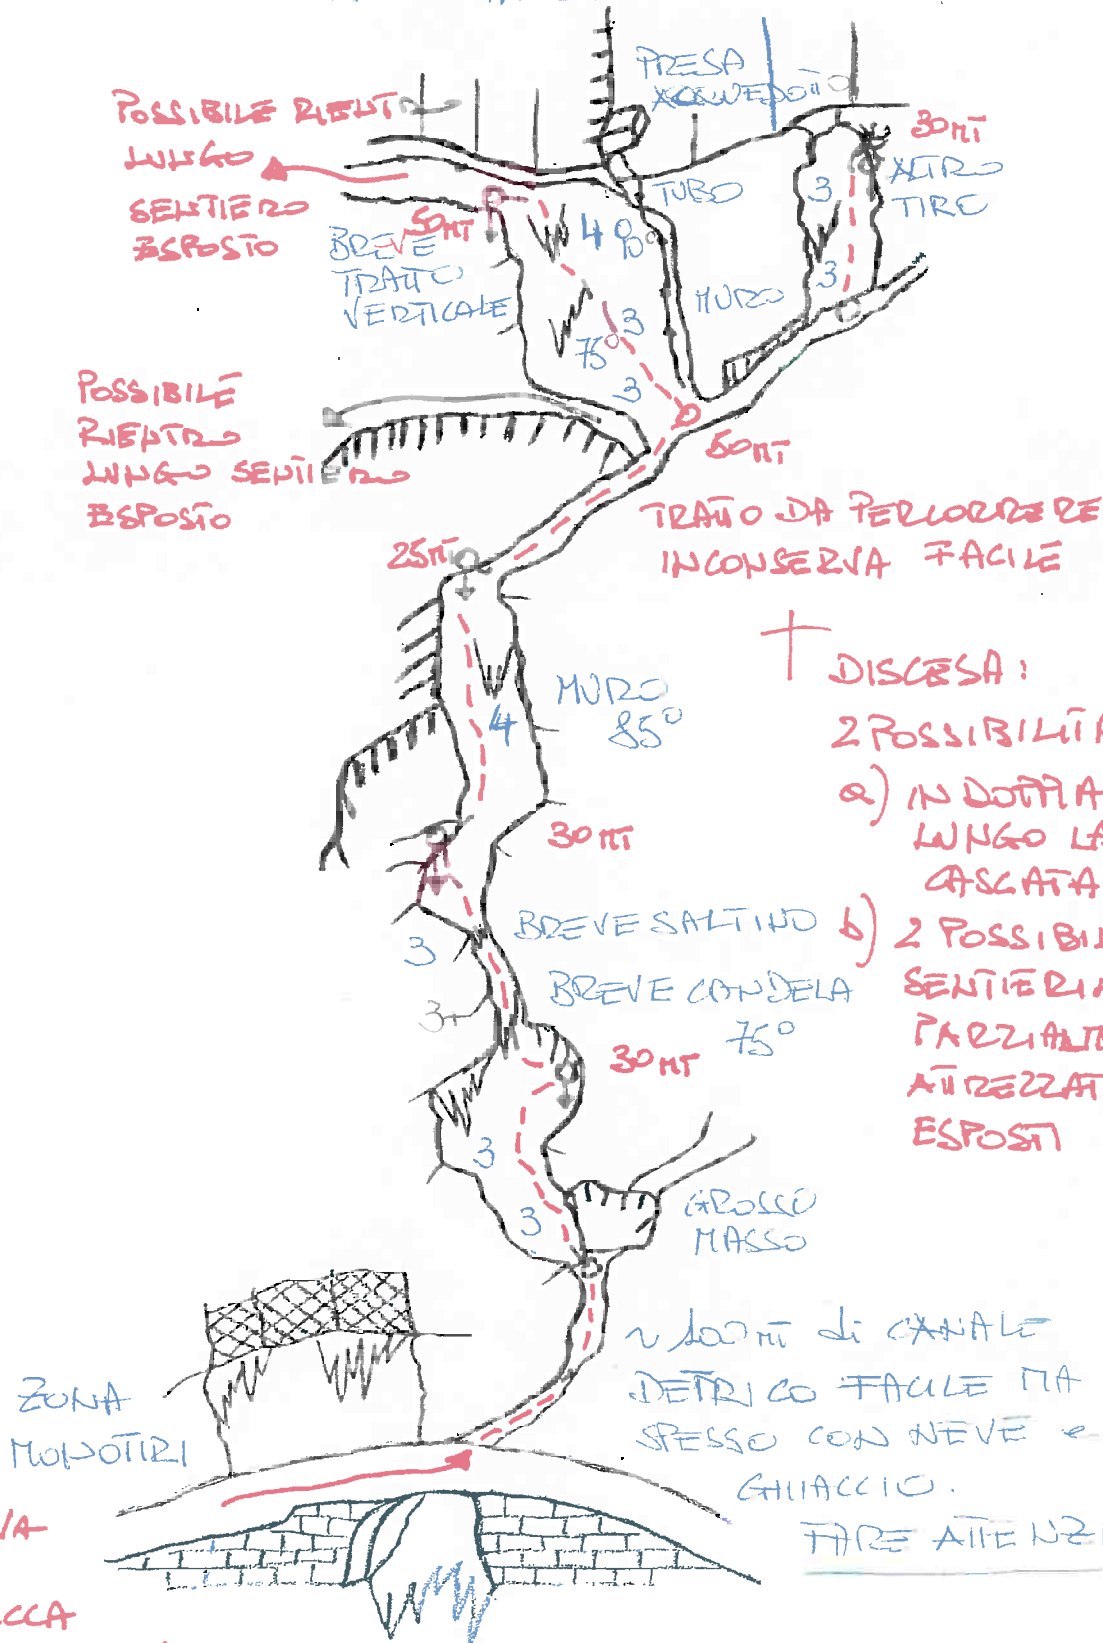 PRESA
ACQUEDOTT
POSSIBILE RIENT
LUNGO
SENTIERO
ESPOSTO
30 MT
ALTRO
TIRO
3
3
TUBO
50 MT
BREVE
TRATTO
VERTICALE
4
90°
MURO
3
75°
3
POSSIBILE
RIENTRO
LUNGO SENTIERO
ESPOSTO
50 MT
TRATTO DA PERCORRERE
IN CONSERVA FACILE
25 MT
DISCESA:
2 POSSIBILITA
a) IN DOPPIA
LUNGO LA
CASCATA
b) 2 POSSIBIL
SENTIERI
PARZIALM
ATTREZZAT
ESPOSTI
MURO
85°
4
30 MT
BREVE SALTINO
3
BREVE CANDELA
75°
3+
30 MT
3
3
GROSSO
MASSO
~ 100 MT di CANALE
DETRICO FACILE MA
SPESSO CON NEVE e
GHIACCIO.
FARE ATTENZ
ZONA
MONOTIRI